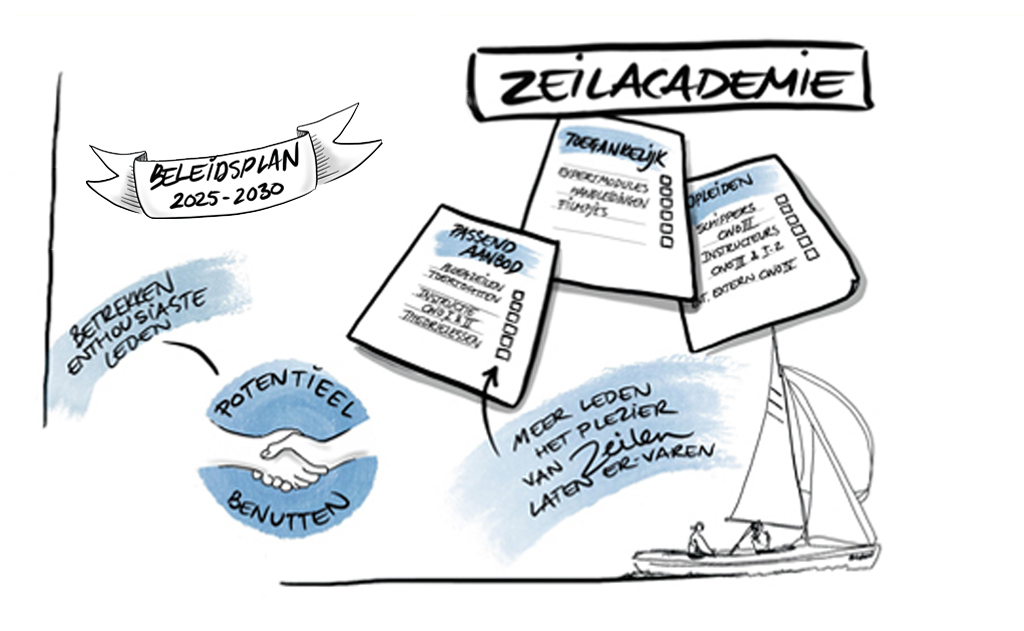 ZEILACADEMIE
BELEIDSPLAN
2025-2030
TOEGANKELIJK
EXPERTMODULES
HANDLEIDINGEN
FILMPJES
OPLEIDEN
SCHIPPERS
CWO III
INSTRUCTEURS
CWO III & I-2
EXTERN CWO IV
PASSEND
AANBOD
INSTRUCTIE
CWO I & II
THEORIELESSEN
BETREKKEN
ENTHOUSIASTE
LEDEN
POTENTIEEL
BENUTTEN
MEER LEDEN
HET PLEZIER
VAN Zeilen
LATEN ER-VAREN